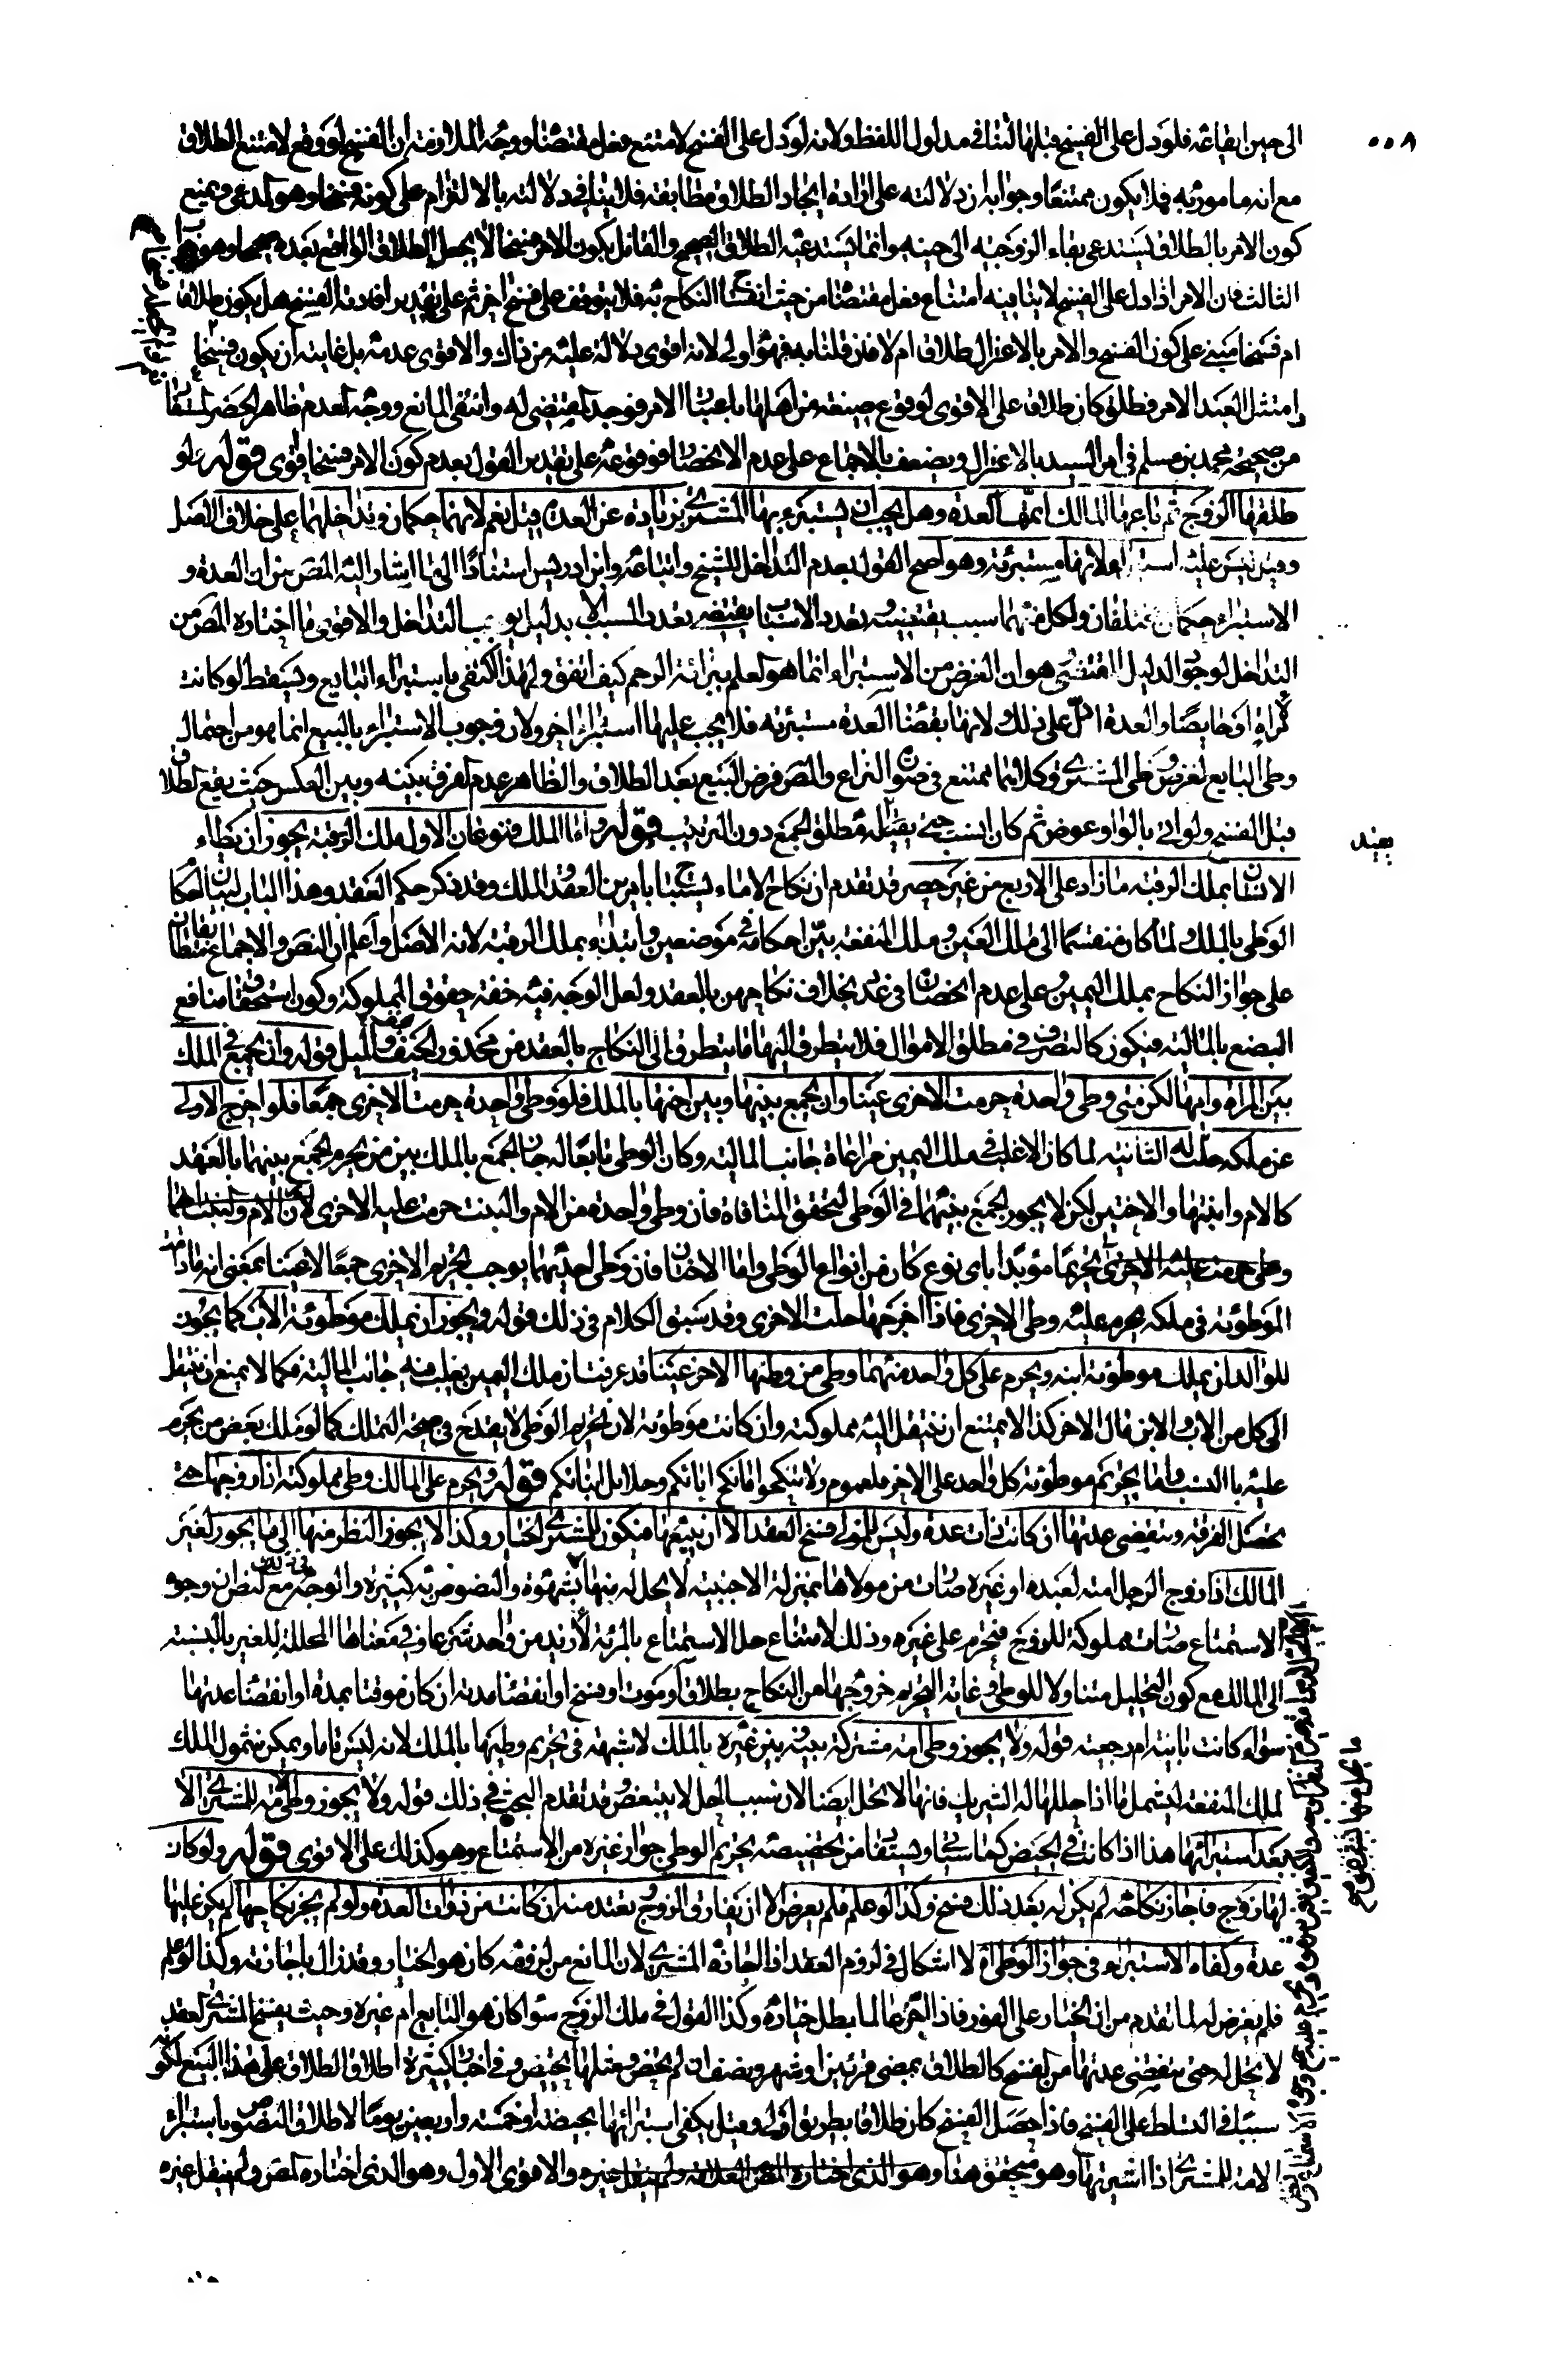 الى حين ايقاعه فلو دل على الفسخ قبلها لتنافى مدلولا اللفظ ولانه لو دل على الفسخ لامتنع فعل مقتضاه ووجه الملازمة ان الفسخ لو وقع لامتنع الطلاق
مع انه مامور به فلا يكون ممتنعا وجوابه ان دلالته على ارادة ايجاد الطلاق مطابقة فلا ينافي دلالته بالالتزام على كونه فسخا وهو المدعى ونمنع
كون الامر بالطلاق يستدعي بقاء الزوجية الى حينه وانما يستدعيه الطلاق الصحيح والقائل بكون الامر فسخا لا يجعل الطلاق الواقع بعده صحيحا وهو
الثالث فان الامر اذا دل على الفسخ لا ينافيه امتناع فعل مقتضاه من حيث انفساخ النكاح به فلا يتوقف على فسخ اخر ثم على تقدير افادته الفسخ هل يكون طلاقا
ام فسخا مبني على كون الفسخ والامر بالاعتزال طلاق ام لا فان قلنا به فهو اولى لانه اقوى دلالة عليه من ذاك والاقوى عدمه بل غايته ان يكون فسخا
وامتثل العبد الامر فطلق كان طلاقا على الاقوى لوقوع صيغته من اهلها باعتبار الامر فوجد المقتضى له وانتفى المانع ووجه العدم ظاهر الحصر المستفاد
من صحيحة محمد بن مسلم في امر السيد بالاعتزال ويضعف بالاجماع على عدم الانحصار فوقوعه على تقدير القول بعدم كون الامر فسخا قوى قوله ولو
طلقها الزوج ثم باعها المالك اتمت العدة وهل يجب ان يستبرء بها المشتري بزيادة عن العدة قيل نعم لانهما حكمان وتداخلهما على خلاف الاصل
وقيل ليس عليه استبراء لانها مستبرئة وهو اصح القول بعدم التداخل للشيخ واتباعه وابن ادريس استنادا الى ما اشار اليه المص من ان العدة و
الاستبراء حكمان مختلفان ولكل منهما سبب يقتضيه وتعدد الاسباب يقتضي تعدد المسبب الا بدليل يوجب التداخل والاقوى ما اختاره المص من
التداخل لوجود الدليل المقتضى هو ان الغرض من الاستبراء انما هو العلم ببرائة الرحم كيف اتفق ولهذا اكتفى باستبراء البايع ويسقط لو كانت
لامراة او حايضا والعدة ادل على ذلك ولانها بقضاء العدة مستبرئة فلا يجب عليها استبراء اخر ولان وجوب الاستبراء بالبيع انما هو من احتمال
وطى البايع لغرض وطى المشتري وكلاهما ممتنع في صورة النزاع والمص فرض البيع بعد الطلاق والظاهر عدم الفرق بينه وبين العكس حيث يقع الطلاق
قبل الفسخ ولو اتى بالواو عوض ثم كان انسب حتى يفيد مطلق الجمع دون الترتيب قوله واما الملك فنوعان الاول ملك الرقبة يجوز ان يطاء
الانسان بملك الرقبة ما زاد على الاربع من غير حصر قد تقدم ان نكاح الاماء يستباح بامرين العقد والملك وقد ذكر حكم العقد وهذا الباب لبيان احكام
الوطى بالملك ولما كان منقسما الى ملك العين وملك المنفعة بين احكامه في موضعين وابتداء بملك الرقبة لانه الاصل واعلم ان النص والاجماع متطابقان
على جواز النكاح بملك اليمين وعلى عدم انحصاره في عدد بخلاف نكاحهن بالعقد ولعل الوجه فيه خفة حقوق المملوكة وكون استحقاق منافع
البضع بالمالية فيكون كالتصرف في مطلق الاموال فلا يتطرق اليها ما يتطرق الى النكاح بالعقد من محذور الحيف والميل قوله وان يجمع في الملك
بين المراة وامها لكن متى وطى واحدة حرمت الاخرى عينا وان يجمع بينها وبين اختها بالملك فلو وطى واحدة حرمت الاخرى جمعا فلو اخرج الاولى
عن ملكه حلت له الثانية لما كان الاغلب في ملك اليمين مراعاة جانب المالية وكان الوطى تابعا له جاز الجمع بالملك بين من يحرم الجمع بينهما بالعقد
كالام وابنتها والاختين لكن لا يجوز الجمع بينهما في الوطى لتحقق المنافاة فان وطى واحدة من الام والبنت حرمت عليه الاخرى لان الام والبنت ايهما
وطى حرمت عليه الاخرى تحريما مؤبدا باي نوع كان من انواع الوطى واما الاختان فان وطى احديهما يوجب تحريم الاخرى جمعا لا عينا بمعنى انه ما دامت
الموطوئة في ملكه يحرم عليه وطى الاخرى فاذا اخرجها حلت الاخرى وقد سبق الكلام في ذلك قوله ويجوز ان يملك موطوئة الاب كما يجوز
للوالد ان يملك موطوئة ابنه ويحرم على كل واحد منهما وطى من وطئها الاخر عينا قد عرفت ان ملك اليمين يغلب فيه جانب المالية فكما لا يمنع ان ينتقل
الى كل من الاب والابن مال الاخر كذا لا يمتنع ان تنتقل اليه مملوكته وان كانت موطوئة لان تحريم الوطى لا يقدح في صحة التملك كما لو ملك بعض من يحرم
عليه بالنسب واما تحريم موطوئة كل واحد على الاخر فلعموم ولا تنكحوا ما نكح ابائكم وحلائل ابنائكم قوله ويحرم على المالك وطى مملوكته اذا زوجها حتى
تحصل الفرقة وتنقضي عدتها ان كانت ذات عدة وليس للمولى فسخ العقد الا ان يبيعها فيكون للمشتري الخيار وكذا لا يجوز النظر منها الى ما يجوز لغير
المالك اذا زوج الرجل امته لعبده او غيره صارت من مولاها بمنزلة الاجنبية لا يحل له منها بشهوة والنصوص به كثيرة والوجه مع النص ان وجوه
الاستمتاع صارت مملوكة للزوج فتحرم على غيره وذلك لامتناع حل الاستمتاع بالمرئة لازيد من واحد شرعا وفي معناها المحللة للغير بالنسبة
الى المالك مع كون التحليل متناولا للوطى وغاية التحريم خروجها من النكاح بطلاق او موت او فسخ او انقضاء مدته ان كان موقتا بمدة او انقضاء عدتها
سواء كانت باينة ام رجعية قوله ولا يجوز وطى امة مشتركة بينه وبين غيره بالملك لا شبهة في تحريم وطيها بالملك لانه ليس تاما ويمكن شمول الملك
لملك المنفعة ليشمل ما اذا حللها له الشريك فانها لا تحل ايضا لان سبب الحل لا يتبعض وقد تقدم البحث في ذلك قوله ولا يجوز وطى الامة للمشتري الا
بعد استبرائها هذا اذا كانت في الحيض كما سياتي ويستفاد من تخصيصه تحريم الوطى جواز غيره من الاستمتاع وهو كذلك على الاقوى قوله ولو كان
لها زوج فاجاز نكاحه لم يكن له بعد ذلك فسخ وكذا لو علم فلم يعرض الا ان يفارق الزوج وتعتد منه ان كانت من ذوات العدة ولو لم يجز نكاحها لم يكن عليها
عدة وكفاه الاستبراء في جواز الوطى لا اشكال في لزوم العقد اذا اجازه المشتري لان المانع من لزومه كان هو الخيار وقد زال باجازته وكذا لو علم
فلم يعرض له لما تقدم من ان الخيار على الفور فاذا اخر عالما بطل خياره وكذا القول في ملك الزوج سواء كان هو البايع ام غيره وحيث يفسخ المشتري العقد
لا تحل له حتى تنقضي عدتها من الفسخ كالطلاق بمضي قرئين او شهر ونصف ان لم تحض ومثلها تحيض وفي اخبار كثيرة اطلاق الطلاق على هذا البيع لكونه
سببا في التسلط على الفسخ فاذا حصل الفسخ كان طلاقا بطريق اولى وقيل يكفي استبرائها بحيضة او خمسة واربعين يوما لاطلاق النصوص باستبراء
الامة للمشتري اذا اشتريها وهو متحقق هنا وهو الذي اختاره المص العلامة ولم ينقل غيره والاقوى الاول وهو الذي اختاره المص ولم ينقل غيره